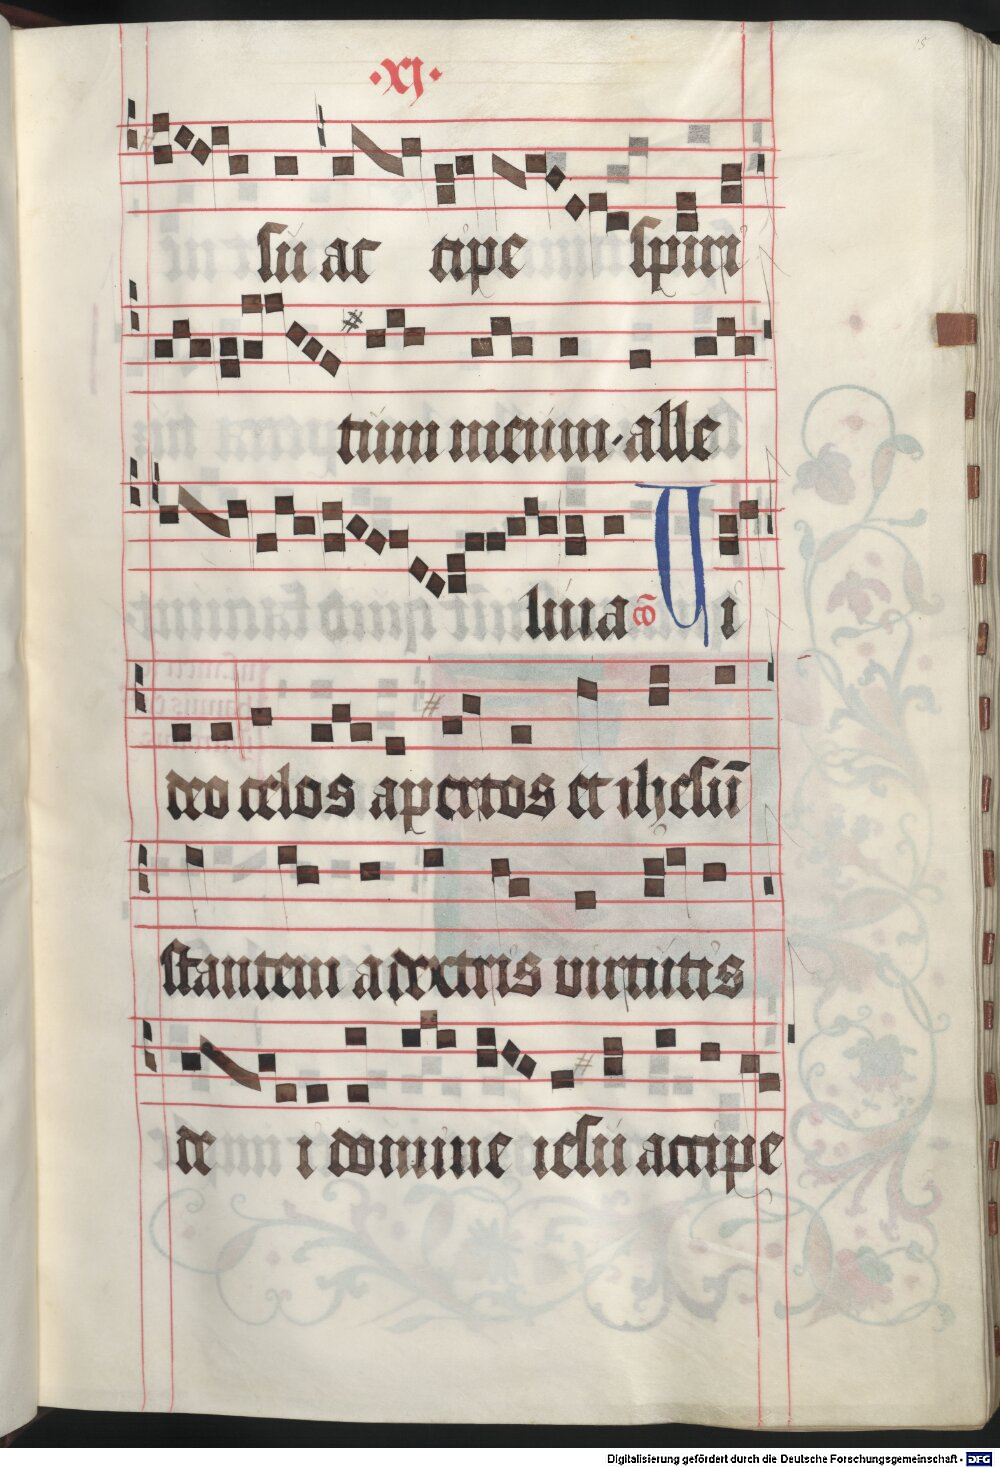 ·xj·
su ac cipe spiri
tum meum. alle
luia co Vi
deo celos apertos et ihesu̅
stantem a dextris virtutis
de i domine iesu accipe
Digitalisierung gefördert durch die Deutsche Forschungsgemeinschaft - DFG